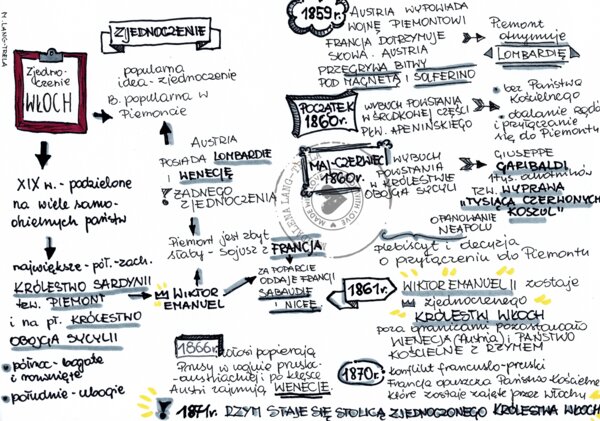 M. LANG-TRELA
Zjedno-
czenie
WŁOCH
XIX w. - podzielone
na wiele samo-
dzielnych państw
największe - płt.-zach.
KRÓLESTWO SARDYNII
tzw. PIEMONT
i na pt. KRÓLESTWO
OBOJGA SYCYLII
północ - bogate
i rozwinięte
południe - ubogie
ZJEDNOCZENIE
popularna
idea - zjednoczenie
b. popularna w
Piemoncie
AUSTRIA
POSIADA LOMBARDIĘ
i WENECJĘ
ŻADNEGO
ZJEDNOCZENIA
Piemont jest zbyt
słaby - sojusz z FRANCJĄ
WIKTOR
EMANUEL
ZA POPARCIE
ODDAJE FRANCJI
SABAUDIĘ
i NICEĘ
1859r.
AUSTRIA WYPOWIADA
WOJNĘ PIEMONTOWI
FRANCJA DOTRZYMUJE
SŁOWA. AUSTRIA
PRZEGRYWA BITWY
POD MAGENTĄ i SOLFERINO
Piemont
otrzymuje
LOMBARDIĘ
POCZĄTEK
1860r.
WYBUCH POWSTANIA
W ŚRODKOWEJ CZĘŚCI
PŁW. APENIŃSKIEGO
bez Państwa
Kościelnego
obalanie rządów
i przyłączanie
się do Piemontu
MAJ-CZERWIEC
1860r.
WYBUCH
POWSTANIA
W KRÓLESTWIE
OBOJGA SYCYLII
GIUSEPPE
GARIBALDI
1 tyś. ochotników
TZW. WYPRAWA
"TYSIĄCA CZERWONYCH
KOSZUL"
OPANOWANIE
NEAPOLU
plebiscyt i decyzja
o przyłączeniu do Piemontu
1861r.
WIKTOR EMANUEL II zostaje
zjednoczonego
KRÓLESTW WŁOCH
poza granicami pozostawało
WENECJA (Austria) i PAŃSTWO
KOŚCIELNE Z RZYMEM
1866r.
Włosi popierają
Prusy w wojnie prusko-
austriackiej i po klęsce
Austri zajmują WENECJĘ.
1870r.
konflikt francusko-pruski
Francja opuszcza Państwo Kościelne
które zostaje zajęte przez Włochy
1871r. RZYM STAJE SIĘ STOLICĄ ZJEDNOCZONEGO KRÓLESTWA WŁOCH